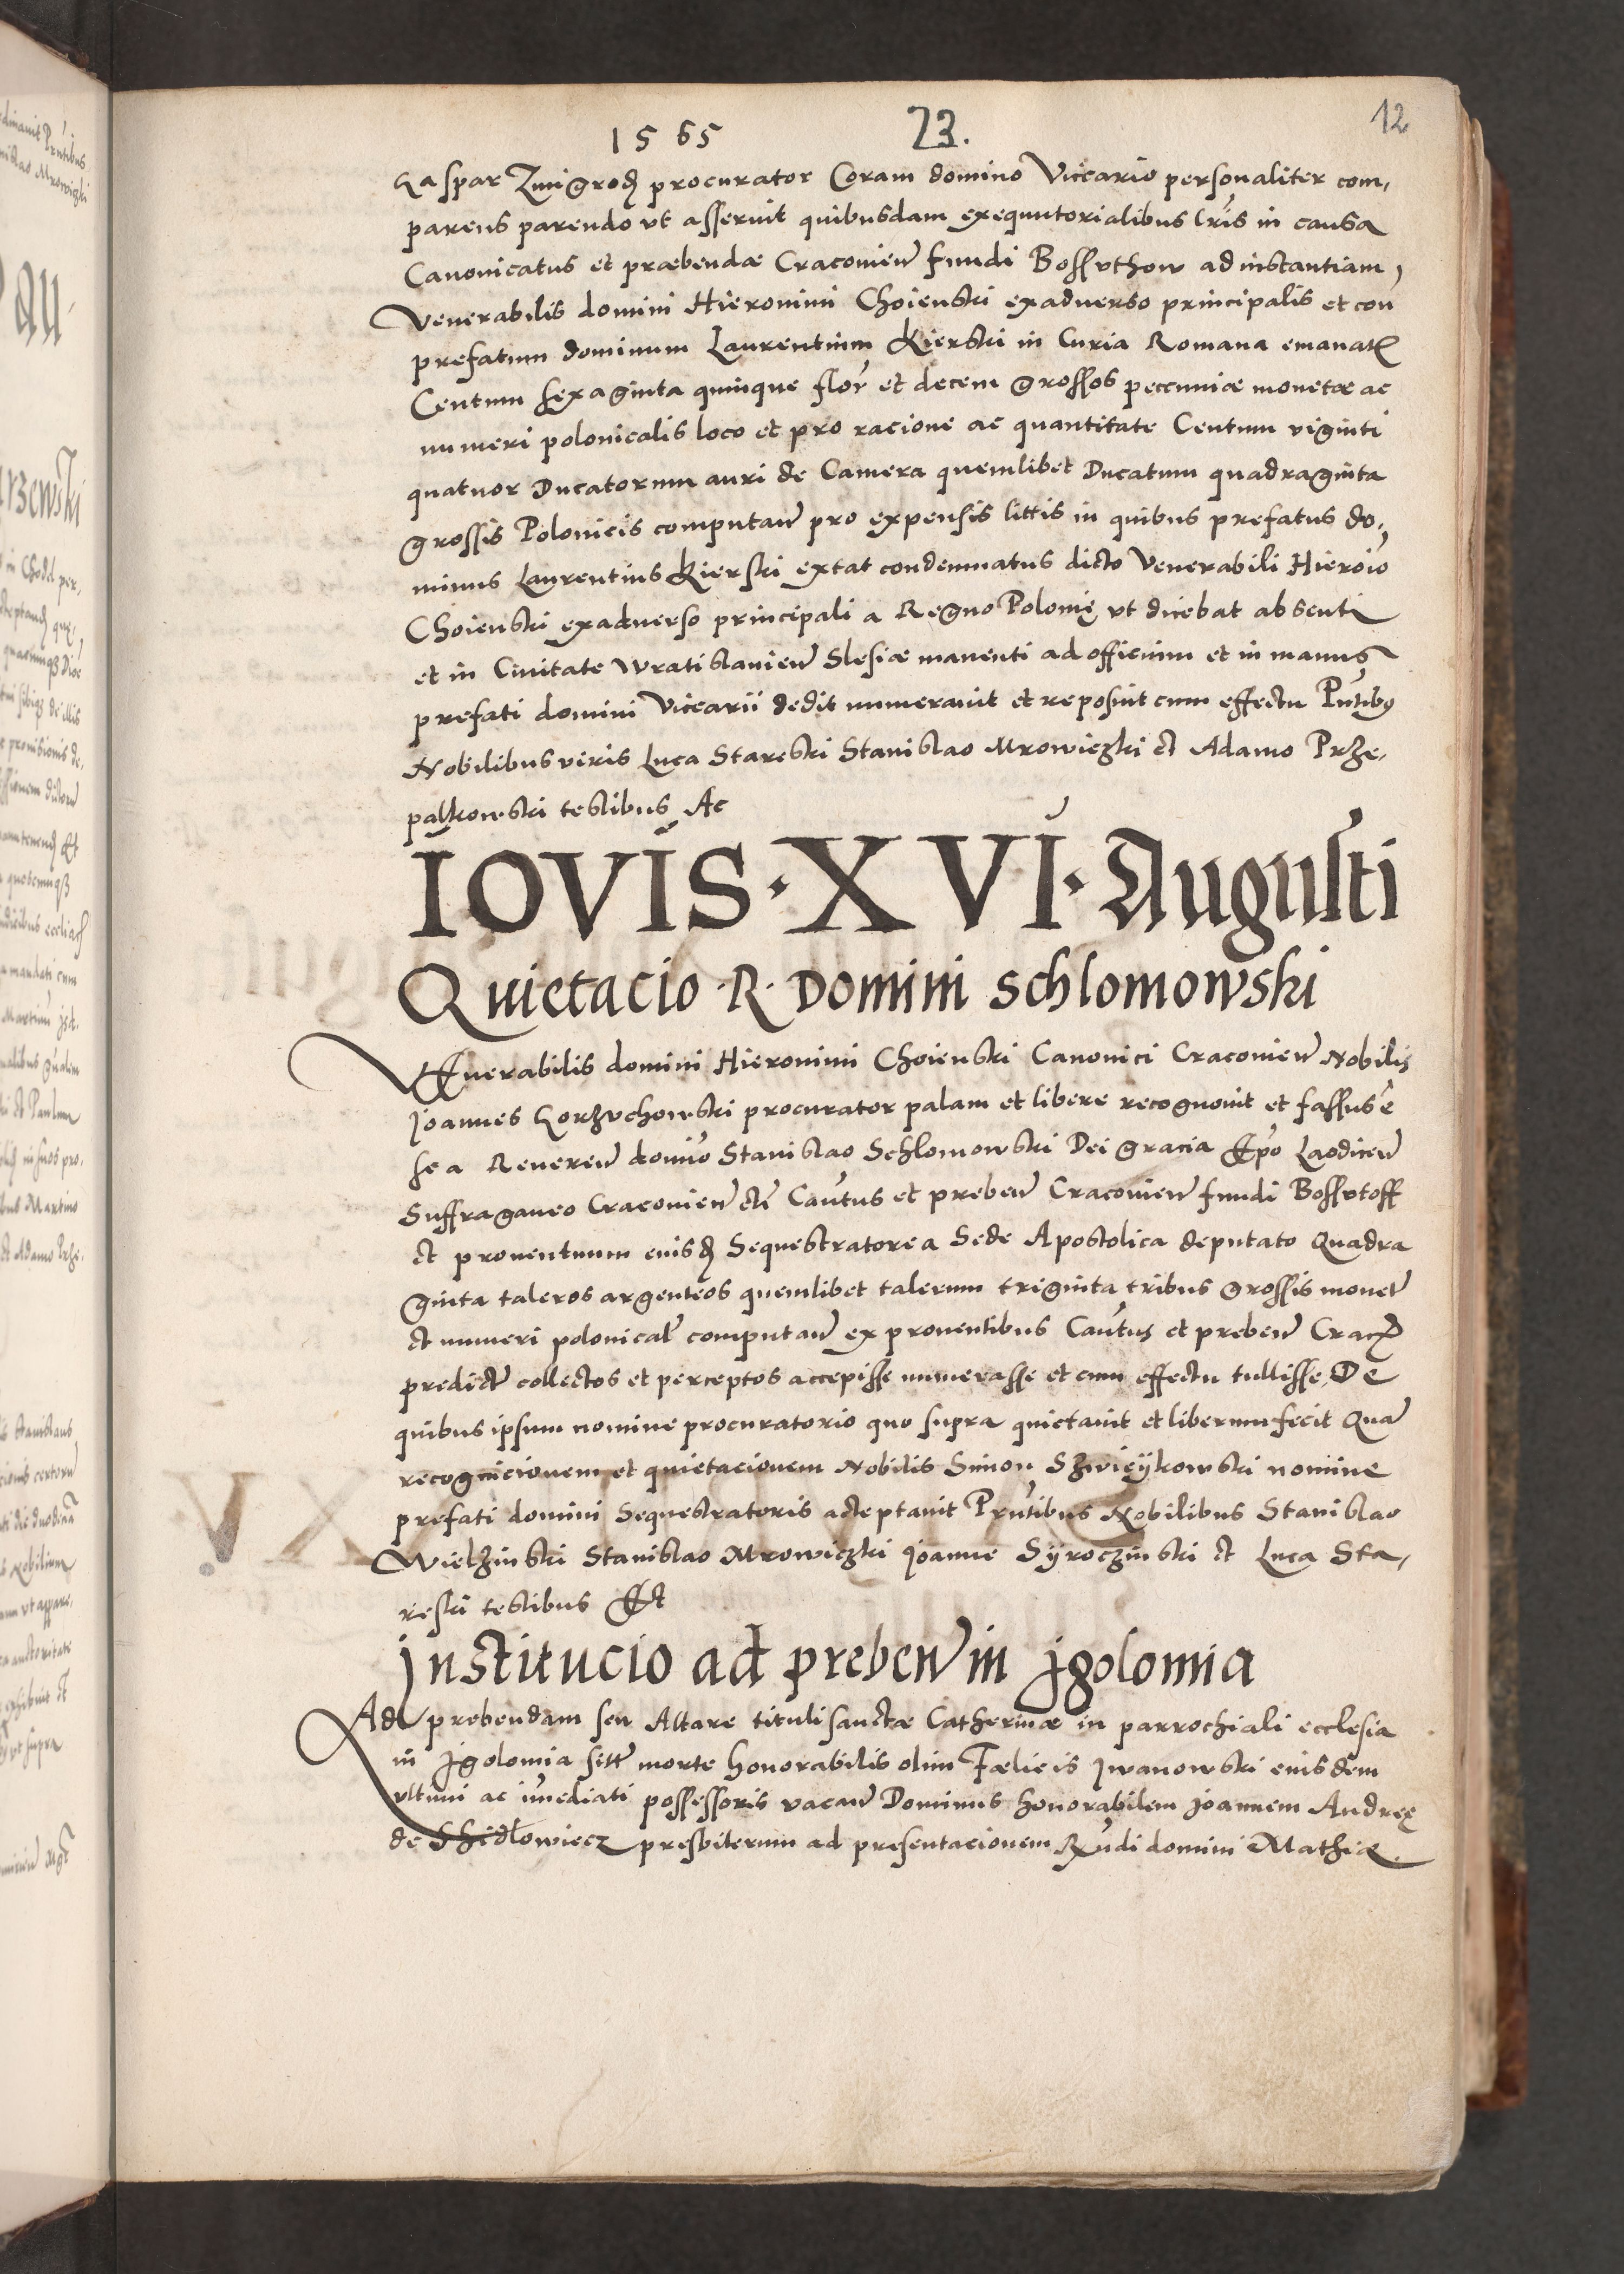 1565 23. 12
Gaspar Zmigrod procurator Coram domino Viccario personaliter com,
parens parendo vt asseruit quibusdam exequutorialibus lris in causa
Canonicatus et præbendæ Cracovien fundi Bossvthow ad instantiam,
Venerabilis domini Hieronimi Choienski exaduerso principalis et con
prefatum dominum Laurentium Kierski in Curia Romana emanat
Centum sexaginta quinque flor et decem grossos peccuniæ monetæ ac
numeri polonicalis loco et pro racione ac quantitate Centum viginti
quatuor Ducatorum auri de Camera quemlibet Ducatum quadraginta
grossis Polonicis computan pro expensis littis in quibus prefatus do,
minus Laurentius Kierski extat condemnatus dicto Venerabili Hieroio
Choienski exaduerso principali a Regno Polonię vt dicebat absenti
et in Ciuitate Wratislauien Slesiæ manenti ad officium et in manus
prefati domini Viccarii dedit numerauit et reposuit cum effectu Pntibus
Nobilibus viris Luca Stareski Stanislao Mrowiczki et Adamo Prze,
palkowski testibus Ac
IOVIS · XVI · Augusti
Quietacio · R · Domini Schlomowski
VEnerabilis domini Hieronimi Choienski Canonici Cracouien Nobilis
Joannes Gorzvchowski procurator palam et libere recognouit et fassus e
se a Reueren domino Stanislao Schlomowski Dei gracia Epo Laodicen
Suffraganeo Cracouien cti Cantus et preben Cracouien fundi Bossvtoff
et prouentuum euisd Sequestratore a Sede Apostolica deputato Quadra
ginta taleros argenteos quemlibet talerum triginta tribus grossis monet
et numeri polonical computan ex prouentibus Cantus et preben Crac
predict collectos et perceptos accepisse numerasse et cum effectu tullisse, De
quibus ipsum nomine procuratorio quo supra quietauit et liberum fecit Quam
recognicionem et quietacionem Nobilis Simon Szwieykowski nomine
prefati domini Sequestratoris acceptauit Pntibus Nobilibus Stanislao
Wielzinski Stanislao Mrowiczki Joanne Syroczinski et Luca Sta,
reski testibus Et
Institucio ad preben in Jgolomia
Ad prebendam seu Altare tituli sanctæ Catherinæ in parrochiali ecclesia
in Jgolomia sitt morte honorabilis olim Fælicis Jwanowski euisdem
vltimi ac imediati possessoris vacan Dominus honorabilem Joannem Andreę
de Shidlowiecz presbiterum ad presentacionem Rndi domini Mathiæ